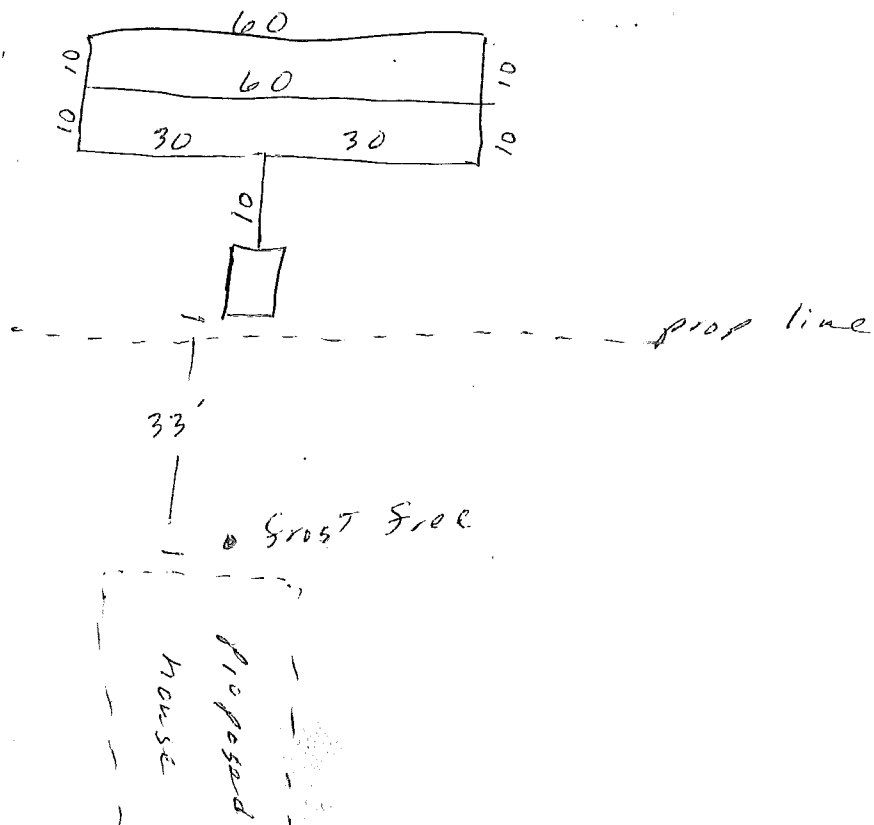 60
10 60 10
10 30 30 10
10
prop line
33'
frost free
proposed
house